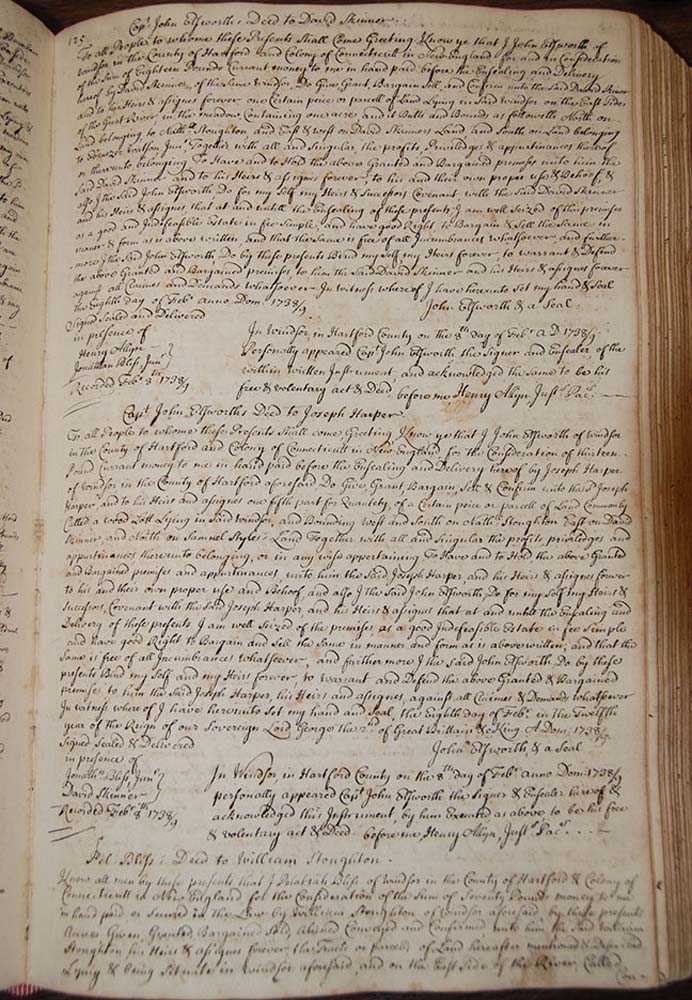 Capt. John Ellsworths Deed to David Skinner.
125 To all People to whome these Presents Shall Come Greeting Know ye that I John Ellsworth of
Windsor in the County of Hartford and Colony of Connecticutt in New England for and in Consideration
of the Sum of Eighteen Pounds Currant money to me in hand paid before the Ensealing and Delivery
hereof by David Skinner of the Same Windsor, Do Give Grant Bargain Sell and Confirm unto the Said David Skinner
and to his Heirs & assignes forever one Certain peice or parcell of Land Lying in Said Windsor on the East Side
of the Great River in the meadow Containing one acre and it Butts and Bounds as followeth North on
Land belonging to Nathll Stoughton, and East & west on David Skinners Land and South on Land belonging
to Ebenezer Watson Junr. Together with all and Singular the profits Priviledges & appurtinances thereof
or thereunto belonging To Have and to Hold the above Granted and Bargained premises unto him the
Said David Skinner and to his Heirs & assignes forever, to his and their own proper use & Behoof, &
also I the Said John Ellsworth Do for my Self my Heirs & Successors Covenant with the Said David Skinner
and his Heirs & assignes that at and untill the Ensealing of these presents, I am well Seized of the premises
as a good and Indefeasible Estate in fee Simple, and have good Right to Bargain & Sell the Same in
manner & form as is above written, and that the Same is free of all Incumbrances whatsoever, and further-
more I the Said John Ellsworth, Do by these presents Bind my Self, my Heirs forever, to warrant & Defend
the above Granted and Bargained premises, to him the Said David Skinner and his Heirs & assignes forever
against all Claimes and Demands whatsoever In witness whereof I have hereunto Set my hand & Seal
the Eighth day of Febr. Anno Dom. 1738/9
Signed Sealed and Delivered John Ellsworth & a Seal
in presence of
Henry Allyn
Jonathan Bliss, Junr.
Recorded Febr. 8th 1738/9
In Windsor, in Hartford County on the 8th Day of Febr. A D 1738/9
Personally appeared Capt. John Ellsworth the Signer and Ensealer of the
within written Instrument, and acknowledged the Same to be his
free & voluntary act & Deed before me, Henry Allyn Just. Pac.
Capt. John Ellsworths Deed to Joseph Harper.
To all People to whome these Presents Shall come Greeting Know ye that I John Ellsworth of Windsor
in the County of Hartford and Colony of Connecticutt in New England for the Consideration of thirteen
Pound Currant money to me in hand paid before the Ensealing and Delivery hereof by Joseph Harper
of Windsor in the County of Hartford aforesaid Do Give, Grant, Bargain, Sell & Confirm unto the sd Joseph
Harper, and to his Heirs and assignes one fifth part for Quantety, of a Certain peice or parcell of Land Commonly
Called a wood Lott Lying in Said Windsor, and Bounding West and South on Nathll Stoughton East on David
Skinner, and North on Samuel Styles's Land Together with all and Singular the profits priviledges and
appurtinances thereunto belonging, or in any wise appertaining To Have and to Hold the above Granted
and Bargained premises and appurtinances, unto him the Said Joseph Harper, and his Heirs & assignes forever
to his and their own proper use and Behoof, and also I the Said John Ellsworth, Do for my Self my Heirs &
Successors, Covenant with the Said Joseph Harper, and his Heirs & assignes that at and untill the Ensealing and
Delivery of these presents I am well Seized of the premises, as a good Indefeasible Estate in fee Simple
and have good Right to Bargain and Sell the Same in manner and form as is above written, and that the
Same is free of all Incumbrances whatsoever, and further more I the Said John Ellsworth Do by these
presents Bind my Self and my Heirs forever, to warrant and Defend the above Granted & Bargained
premises to him the Said Joseph Harper, his Heirs and assignes, against all Claimes & Demands whatsoever
In witness whereof I have hereunto Set my hand and Seal, the Eighth day of Febr. in the Twelfth
year of the Reign of our Sovereign Lord George the 2nd of Great Brittain &c King A Dom: 1738/9
Signed Sealed & Delivered John Ellsworth & a Seal
in presence of
Jonathn Bliss, Junr.
David Skinner
Recorded Febr. 8th 1738/9
In Windsor, in Hartford County on the 8th day of Febr. Anno Dom: 1738/9
personally appeared Capt. John Ellsworth the Signer & Ensealer hereof &
acknowledged this Instrument, by him Executed as above to be his free
& voluntary act & Deed before me Henry Allyn, Just. Pac.
Pel. Bliss: Deed to William Stoughton.
Know all men by these presents that I Pelatiah Bliss of Windsor in the County of Hartford & Colony of
Connecticutt in New England for the Consideration of the Sum of Seventy Pounds money to me
in hand paid or Secured in the Law by William Stoughton of Windsor aforesaid, by these presents
Have Given Granted Bargained Sold, Aliened Conveyed and Confirmed unto him the Said William
Stoughton his Heirs & assignes forever, the Tracts or parcels of Land hereafter mentioned &
Lying & being Situate in Windsor aforesaid, and on the East Side of the River, Called